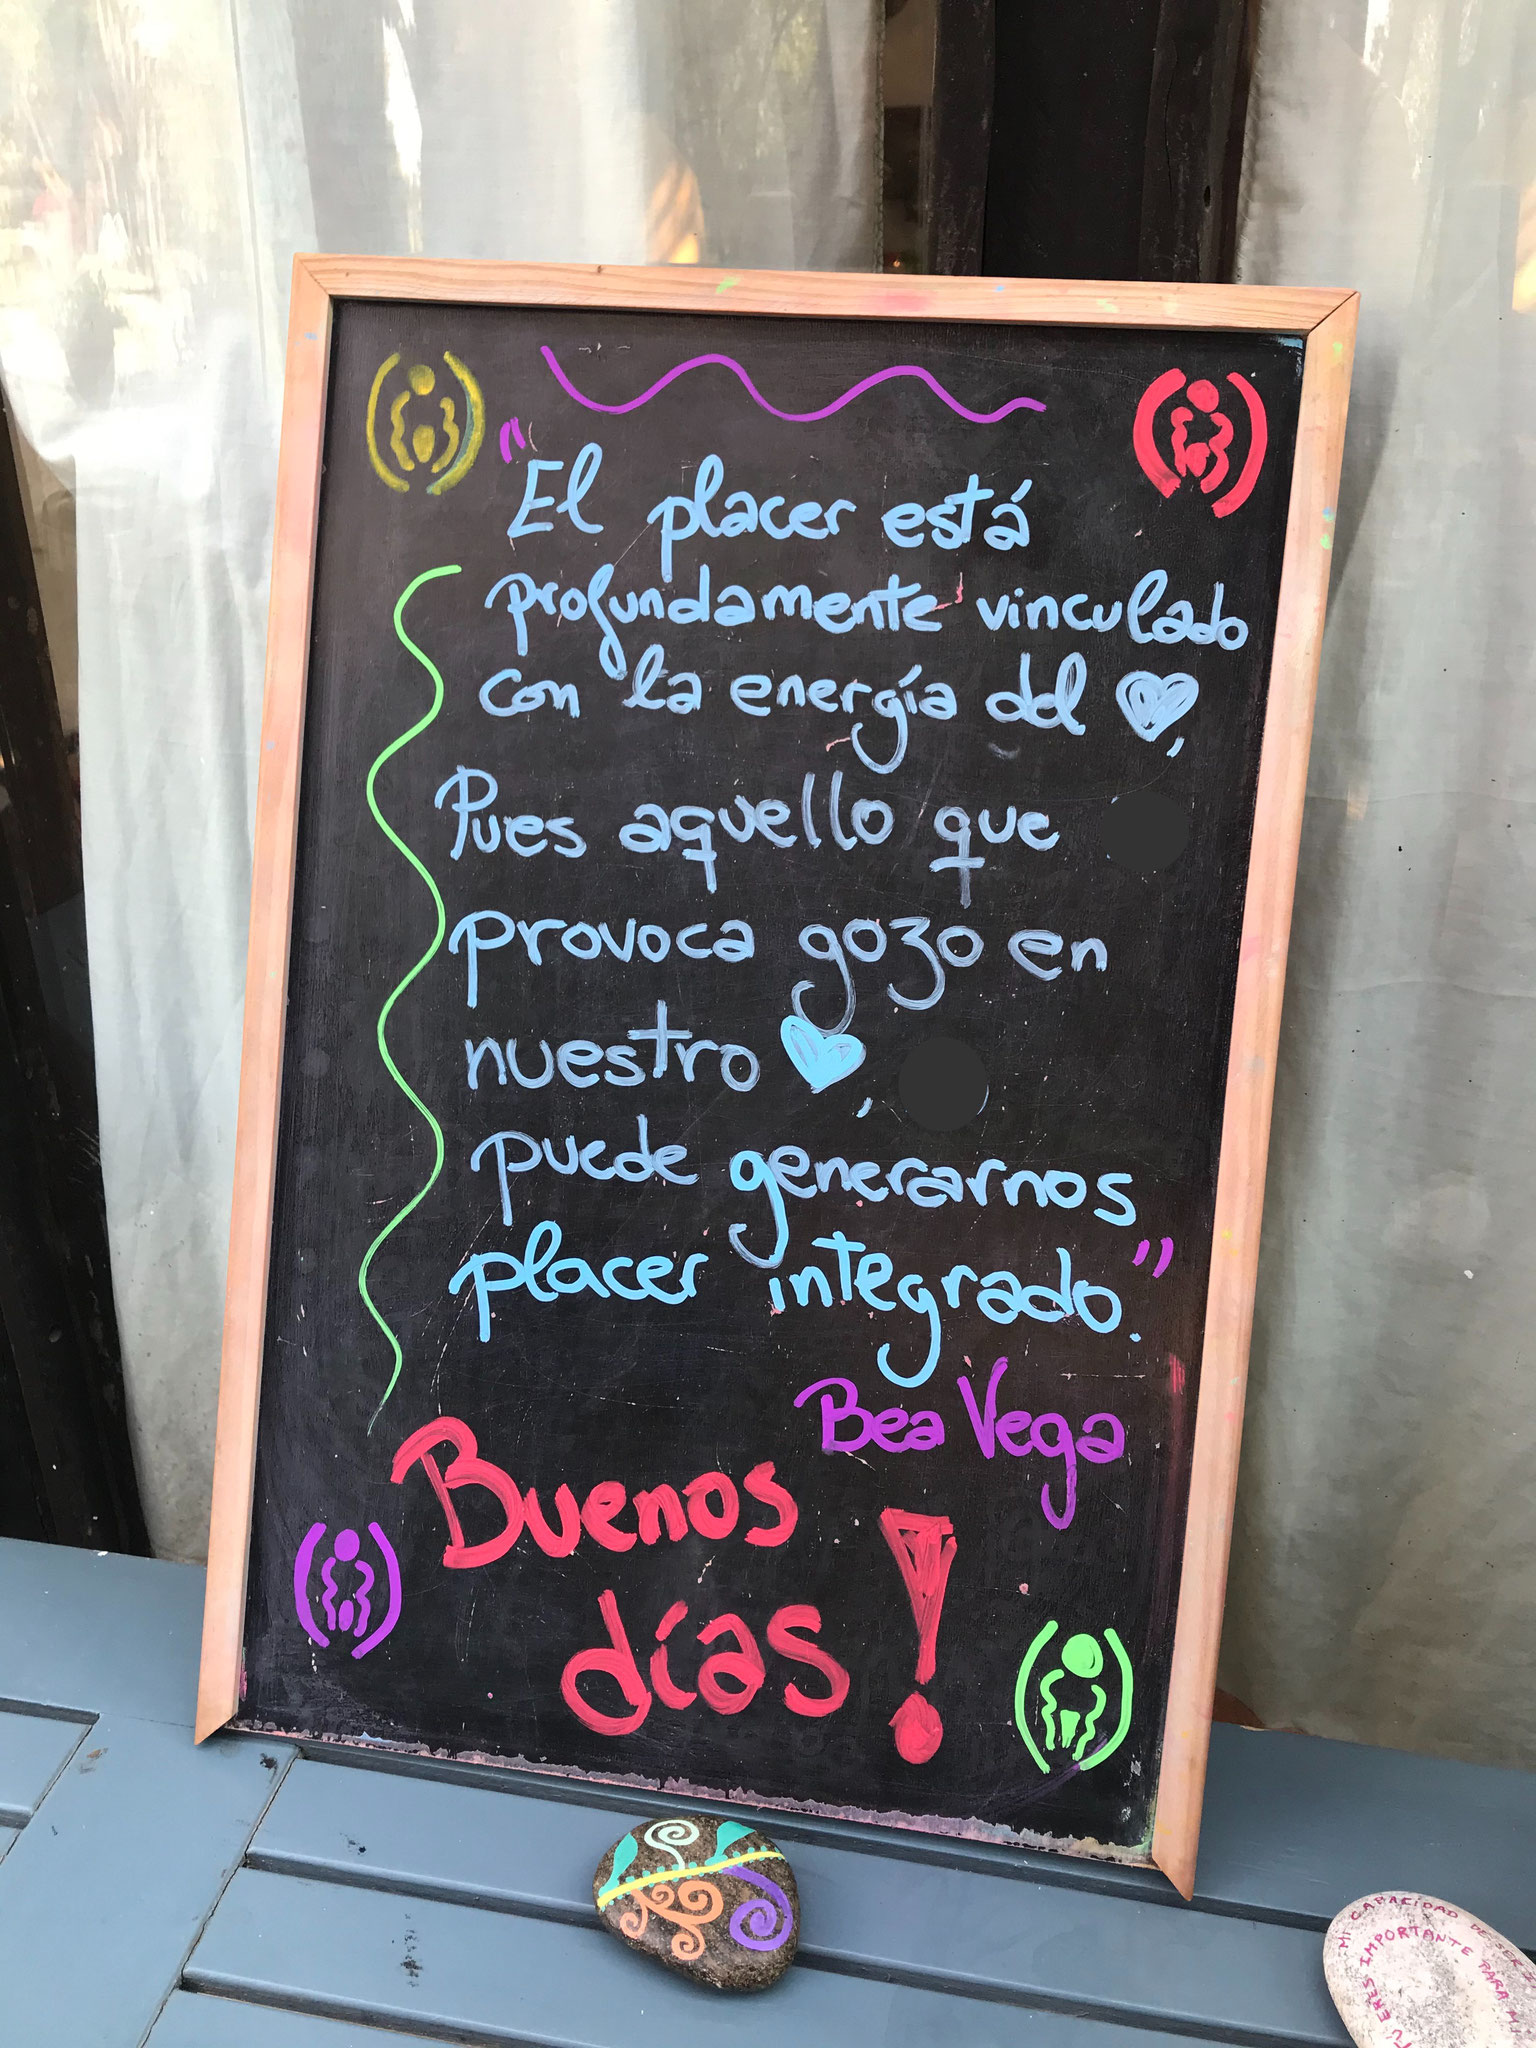 "El placer está
profundamente vinculado
con la energía del ♥,
Pues aquello que
provoca gozo en
nuestro ♥,
puede generarnos
placer integrado."
Bea Vega
Buenos
días!
MI CAPACIDAD DE SER
TÚ ERES IMPORTANTE PARA MI